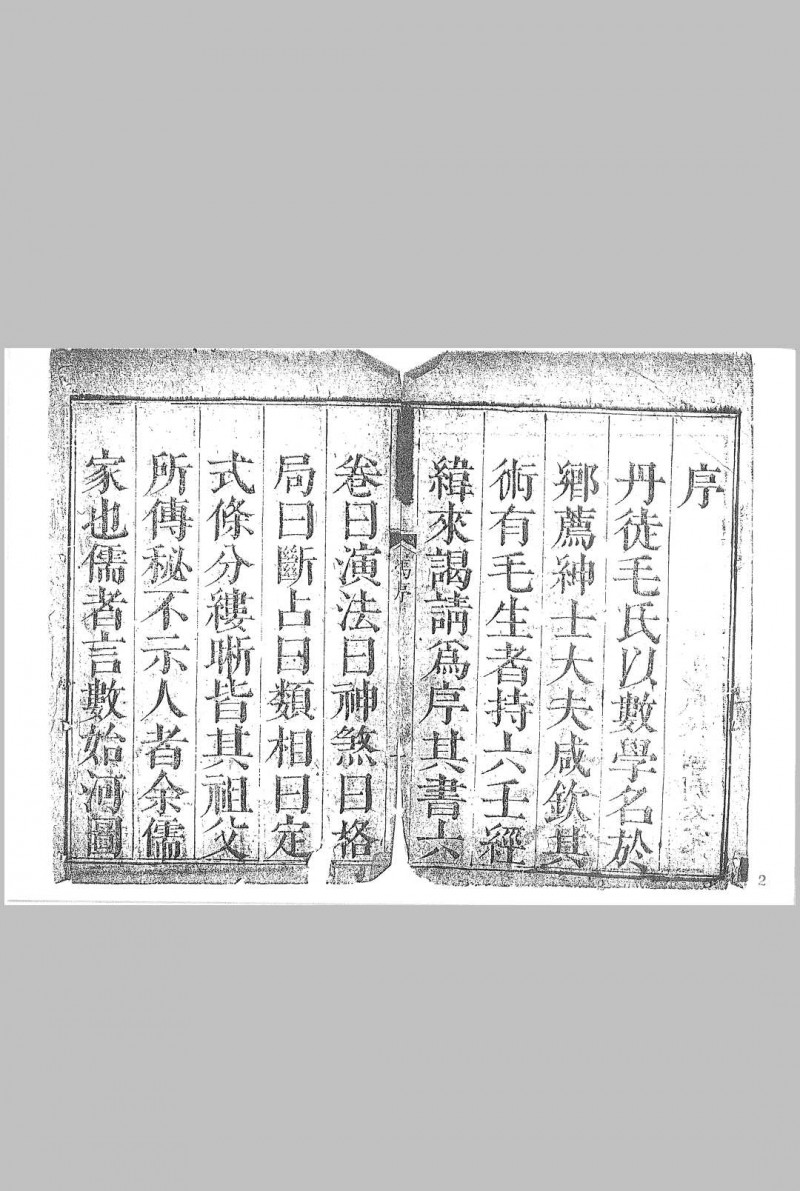 序
丹徒毛氏以數學名於
鄉薦紳士大夫咸欽其
術有毛生者持六壬經
緯來謁請爲序其書六
馮序
卷曰演法曰神煞曰格
局曰斷占曰類相曰定
式條分縷晰皆其祖父
所傳秘不示人者余儒
家也儒者言數始河圖
2